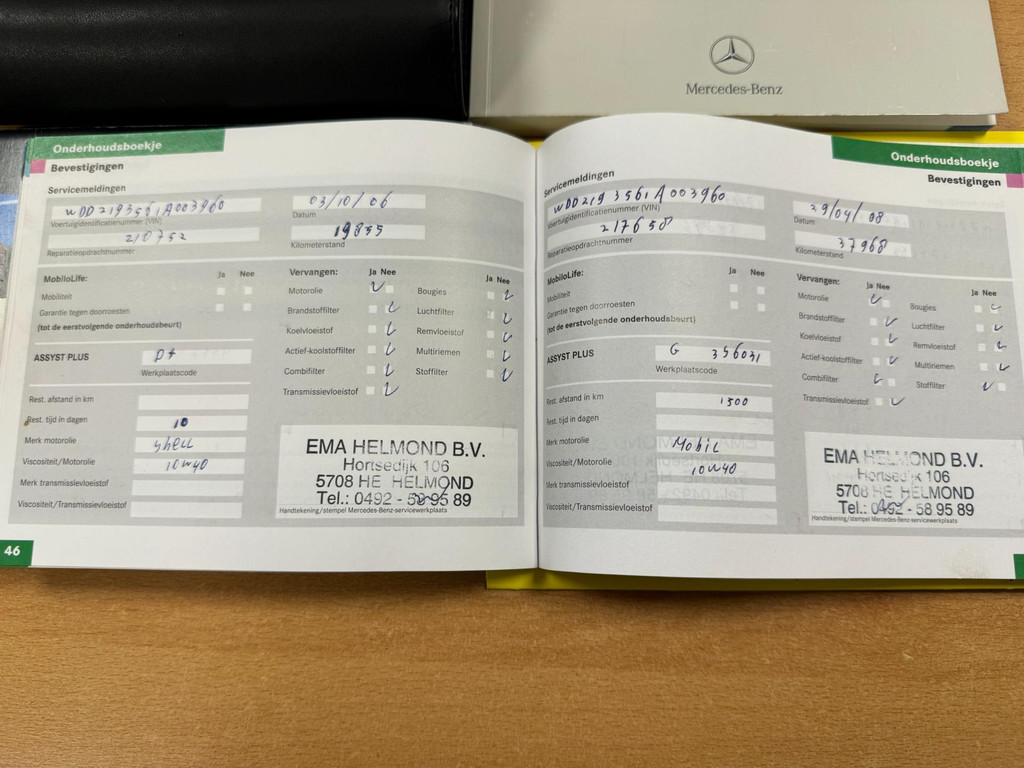 Mercedes-Benz
Onderhoudsboekje
Bevestigingen
Servicemeldingen
WDD2193561A003960
Voertuigidentificatienummer (VIN)
03/10/06
Datum
210752
Reparatieopdrachtnummer
19835
Kilometerstand
MobiloLife: Ja Nee
Mobiliteit
Garantie tegen doorroesten
(tot de eerstvolgende onderhoudsbeurt)
Vervangen: Ja Nee Ja Nee
Motorolie Bougies
Brandstoffilter Luchtfilter
Koelvloeistof Remvloeistof
Actief-koolstoffilter Multiriemen
Combifilter Stoffilter
Transmissievloeistof
ASSYST PLUS
Werkplaatscode
Rest. afstand in km
Rest. tijd in dagen 10
Merk motorolie Shell
Viscositeit/Motorolie 10W40
Merk transmissievloeistof
Viscositeit/Transmissievloeistof
EMA HELMOND B.V.
Hortsedijk 106
5708 HE HELMOND
Tel.: 0492 - 58 95 89
Handtekening/stempel Mercedes-Benz-servicewerkplaats
46
Onderhoudsboekje
Bevestigingen
Servicemeldingen
WDD2193561A003960
Voertuigidentificatienummer (VIN)
29/04/08
Datum
217658
Reparatieopdrachtnummer
37968
Kilometerstand
MobiloLife: Ja Nee
Mobiliteit
Garantie tegen doorroesten
(tot de eerstvolgende onderhoudsbeurt)
Vervangen: Ja Nee Ja Nee
Motorolie Bougies
Brandstoffilter Luchtfilter
Koelvloeistof Remvloeistof
Actief-koolstoffilter Multiriemen
Combifilter Stoffilter
Transmissievloeistof
ASSYST PLUS G 356031
Werkplaatscode
Rest. afstand in km 1500
Rest. tijd in dagen
Merk motorolie Mobil
Viscositeit/Motorolie 10W40
Merk transmissievloeistof
Viscositeit/Transmissievloeistof
EMA HELMOND B.V.
Hortsedijk 106
5708 HE HELMOND
Tel.: 0492 - 58 95 89
Handtekening/stempel Mercedes-Benz-servicewerkplaats